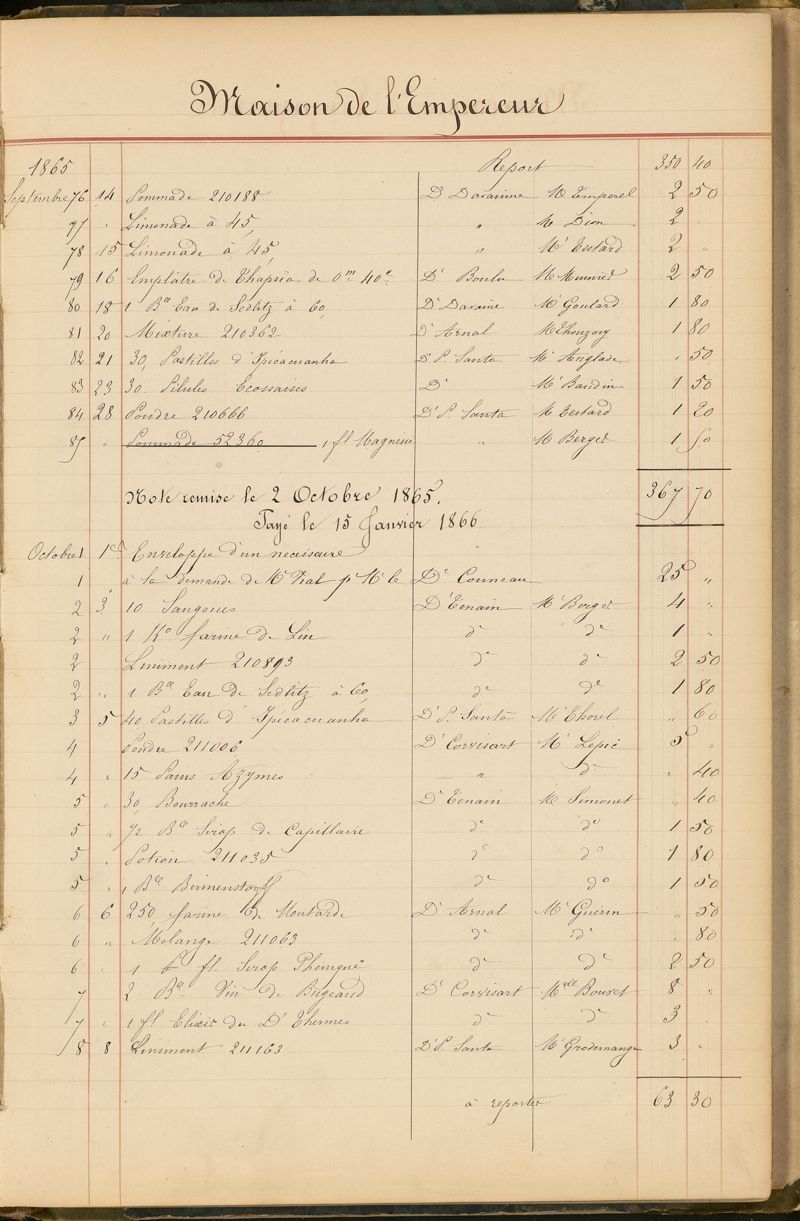 Maison de l'Empereur
1865 Report 350 40
Septembre 76 14 Pommade 210188 Dr Daraine Mr Emperel 2 50
77 " Limonade à 45, " Mr Dion 2 "
78 15 Limonade à 45, " Mr Testard 2 "
79 16 Emplatre de Thapsia de 0m 40c Dr Boulu Mr Meunier 2 50
80 18 1 Blle Eau de Sedlitz à 60, Dr Daraine Mr Goulard 1 80
81 20 Mixture 210362 Dr Arnal 1 80
82 21 30, Pastilles d'Ipécacuanha Dr P. Santa Mr Anglade " 50
83 23 30 Pilules Ecossaises Dr Mr Baudin 1 50
84 28 Poudre 210666 Dr P. Santa Mr Testard 1 20
85 " Pommade 52360 1 fl Magnésie " Mr Berger 1 50
Note remise le 2 Octobre 1865. 367 70
Payé le 15 Janvier 1866.
Octobre 1 1er Enveloppe d'un necessaire
1 à la demande de Mr Viat pr Mr le Dr Conneau 25 "
2 3 10 Sangsues Dr Tenain Mr Berger 4 "
2 " 1 Ko farine de Lin do do 1 "
2 Liniment 210893 do do 2 50
2 " 1 Blle Eau de Sedlitz à 60, do do 1 80
3 5 40 Pastilles d'Ipécacuanha Dr P. Santa Mr Thorel " 60
4 Poudre 211006 Dr Corvisart Mr Lepic 5 "
4 " 15 Pains Azymes " do " 40
5 " 30, Bourrache Dr Tenain Mr Simonet " 40
5 " 1/2 Blle Sirop de Capillaire do do 1 50
5 " Potion 211035 do do 1 80
5 " 1 Blle Birmenstorff do do 1 50
6 6 250, farine de Moutarde Dr Arnal Mr Guérin " 50
6 " Melange 211063 do do " 80
6 " 1 fl. Sirop Pheniqué do do 2 50
7 2 Blles Vin de Bugeaud Dr Corvisart Melle Bouvet 8 "
7 " 1 fl Elixir du Dr Thermes do do 3 "
8 8 Liniment 211163 Dr P. Santa Mr Grodemange 3 "
à reporter 63 30